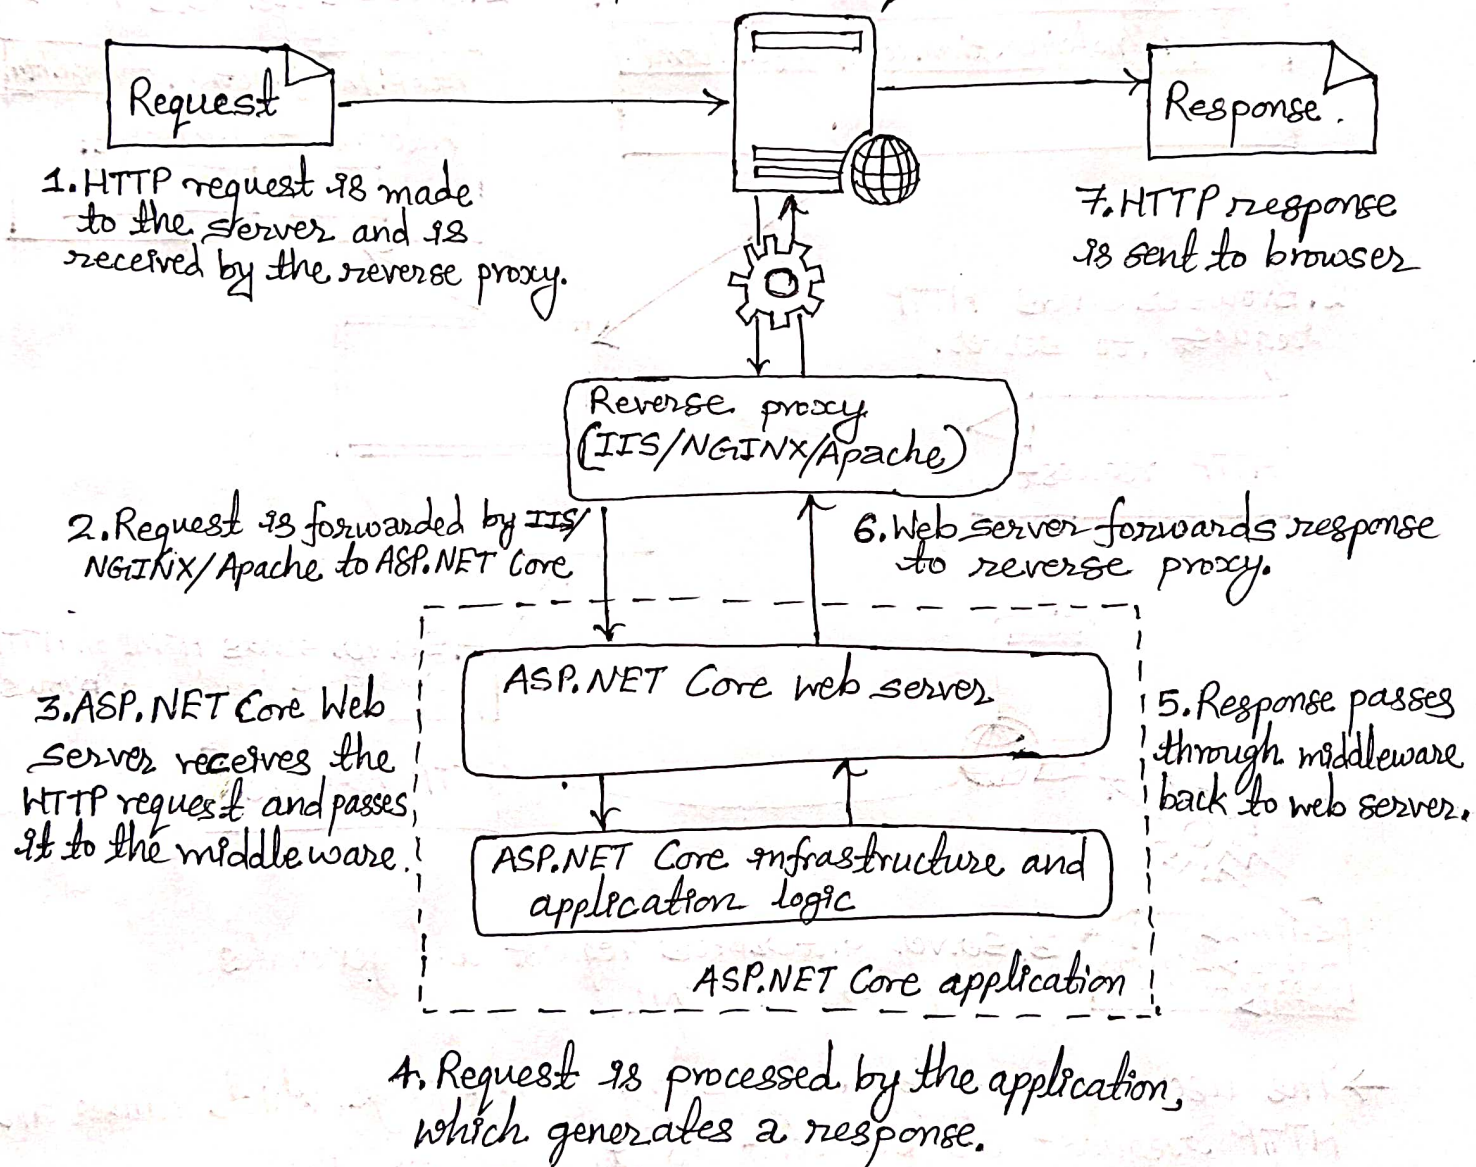 Request
Response.
1. HTTP request is made
to the server and is
received by the reverse proxy.
7. HTTP response
is sent to browser
Reverse proxy
(IIS/NGINX/Apache)
2. Request is forwarded by IIS/
NGINX/Apache to ASP.NET Core
6. Web server forwards response
to reverse proxy.
ASP.NET Core web server
3. ASP.NET Core Web
server receives the
HTTP request and passes
it to the middleware.
5. Response passes
through middleware
back to web server.
ASP.NET Core infrastructure and
application logic
ASP.NET Core application
4. Request is processed by the application,
which generates a response.